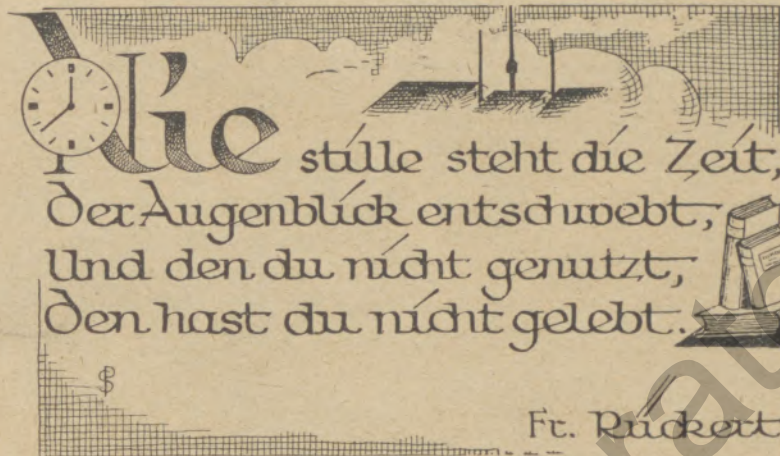 Nie stille steht die Zeit,
Der Augenblick entschwebt,
Und den du nicht genutzt,
Den hast du nicht gelebt.
Fr. Rückert